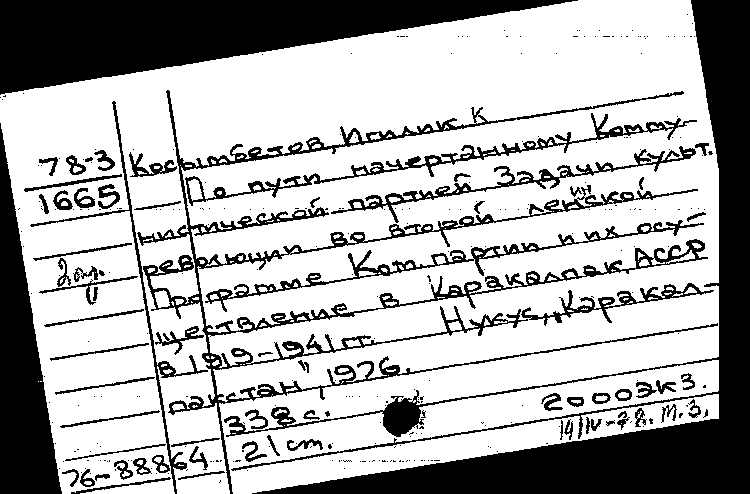 78-3
1665
Косымбетов, Игилик К
По пути начертанному Комму-
нистической партией Задачи культ.
революции во второй ленинской
Программе Ком. партии и их осу-
ществление в Каракалпак. АССР
в 1919-1941 гг. Нукус, "Каракал-
пакстан", 1976.
338 с.
21 cm. 2000экз.
76-88864 19/IV-78. М.З.